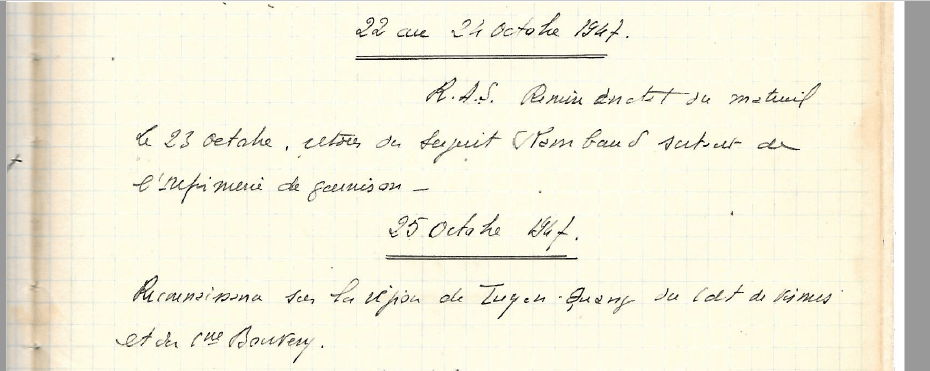 22 au 24 Octobre 1947.
R.A.S. Remise en état du matériel
Le 23 octobre, retour du Sergent Rambaud sortant de
l'Infirmerie de garnison —
25 Octobre 1947.
Reconnaissance sur la région de Tuyen-Quang du Cdt de
et du Cne Bouvery.